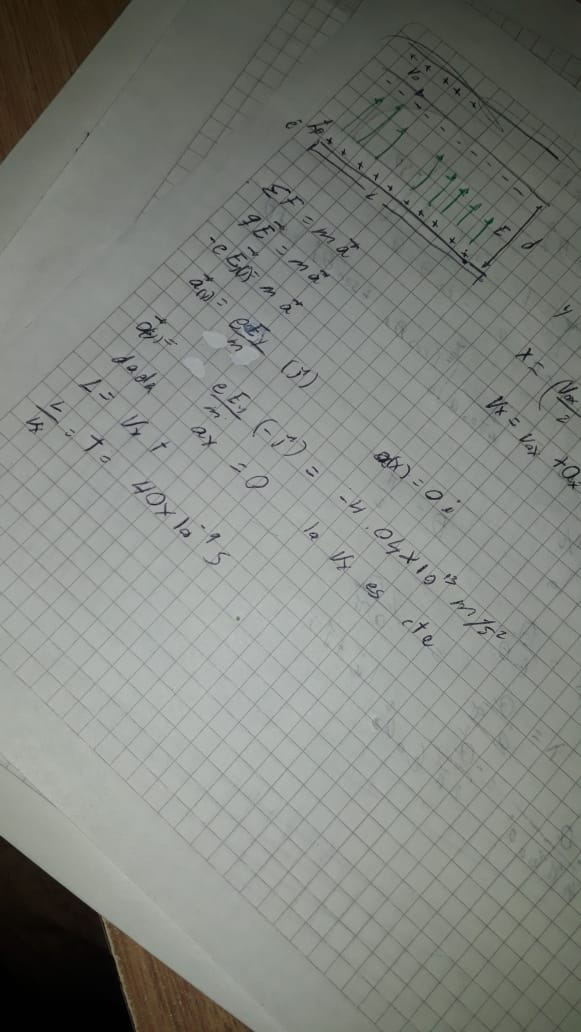 V₀
e⁻
L
E
d
ΣF = m a⃗
qE⃗ = m a⃗
-e E⃗(y) = m a⃗
a⃗(y) = eEy/m (j^)
a⃗(y) = eEy/m (-j^) = -4.04x10¹³ m/s²
a(x) = 0 i
dada ax = 0 la Vx es cte
L = Vx t
L/Vx = t = 40x10⁻⁹ s
y
x = (Vox/2
Vx = Vox + ax